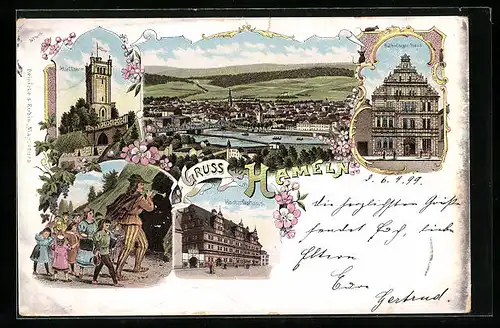 Klüthturm
Rattenfänger-Haus
GRUSS aus HAMELN
Hochzeitshaus
d. 6. 1. 99.
Die herzlichsten Grüße
sendet Euch, liebe
Eltern
Eure
Gertrud.